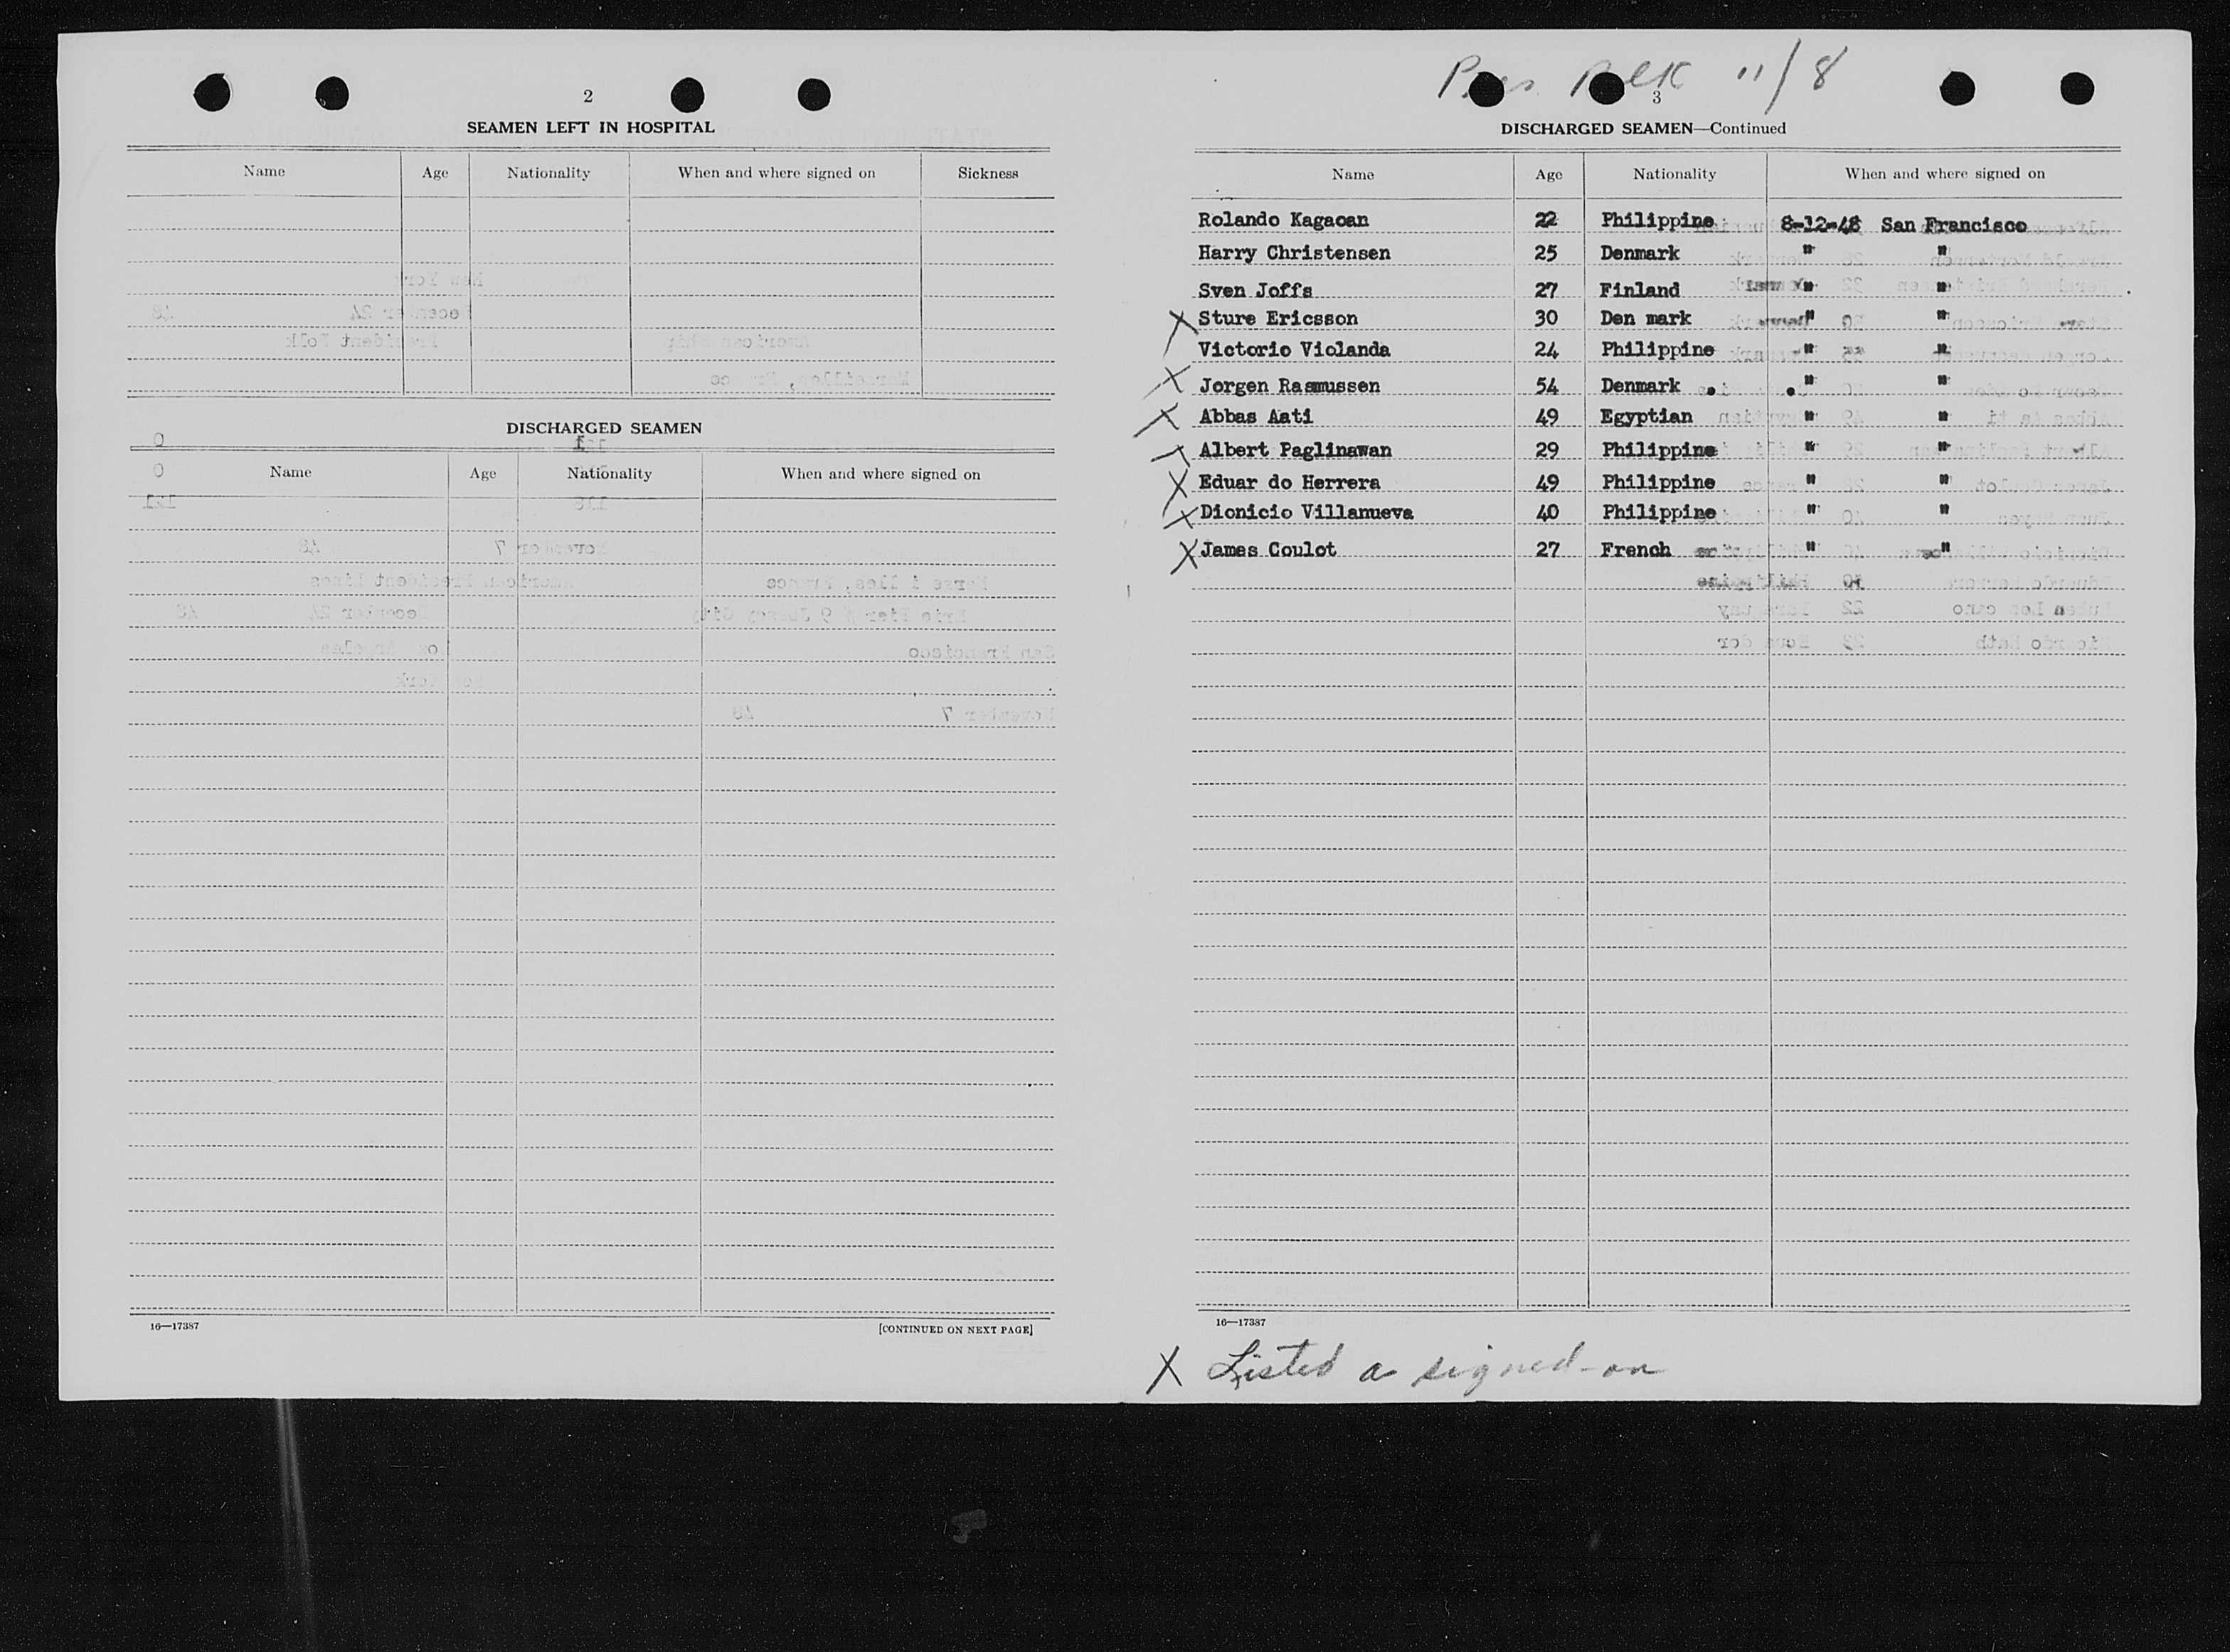 2
SEAMEN LEFT IN HOSPITAL
Name Age Nationality When and where signed on Sickness
DISCHARGED SEAMEN
Name Age Nationality When and where signed on
16—17387 [CONTINUED ON NEXT PAGE]
Pres Polk 11/8
3
DISCHARGED SEAMEN—Continued
Name Age Nationality When and where signed on
Rolando Kagaoan 22 Philippine 8-12-48 San Francisco
Harry Christensen 25 Denmark " "
Sven Joffs 27 Finland " "
X Sture Ericsson 30 Den mark " "
Victorio Violanda 24 Philippine " "
X Jorgen Rasmussen 54 Denmark " "
X Abbas Aati 49 Egyptian " "
X Albert Paglinawan 29 Philippine " "
X Eduar do Herrera 49 Philippine " "
X Dionicio Villanueva 40 Philippine " "
X James Coulot 27 French " "
16—17387
X Listed as signed-on